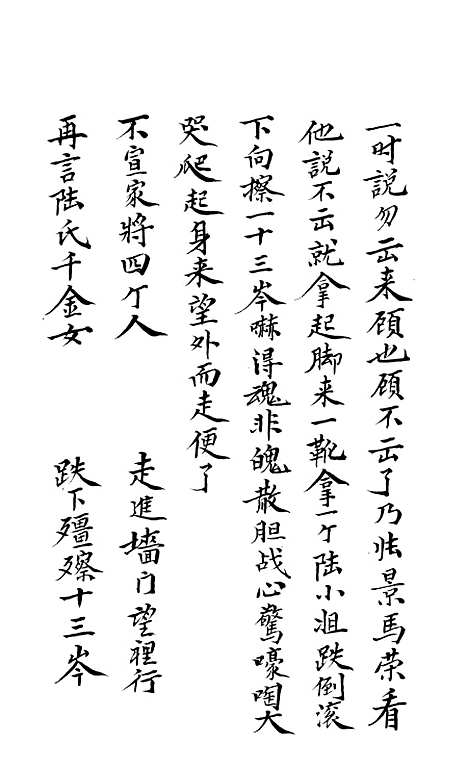 一时説勿云来顾也顾不云了乃怅景馬荣看
他説不云就拿起脚来一靴拿一个陆小姐跌倒滚
下向擦一十三岑嚇得魂非魄散胆战心驚嚎啕大
哭爬起身来望外而走便了
不宣家將四个人　走進墻门望裡行
再言陆氏千金女　跌下殭殩十三岑